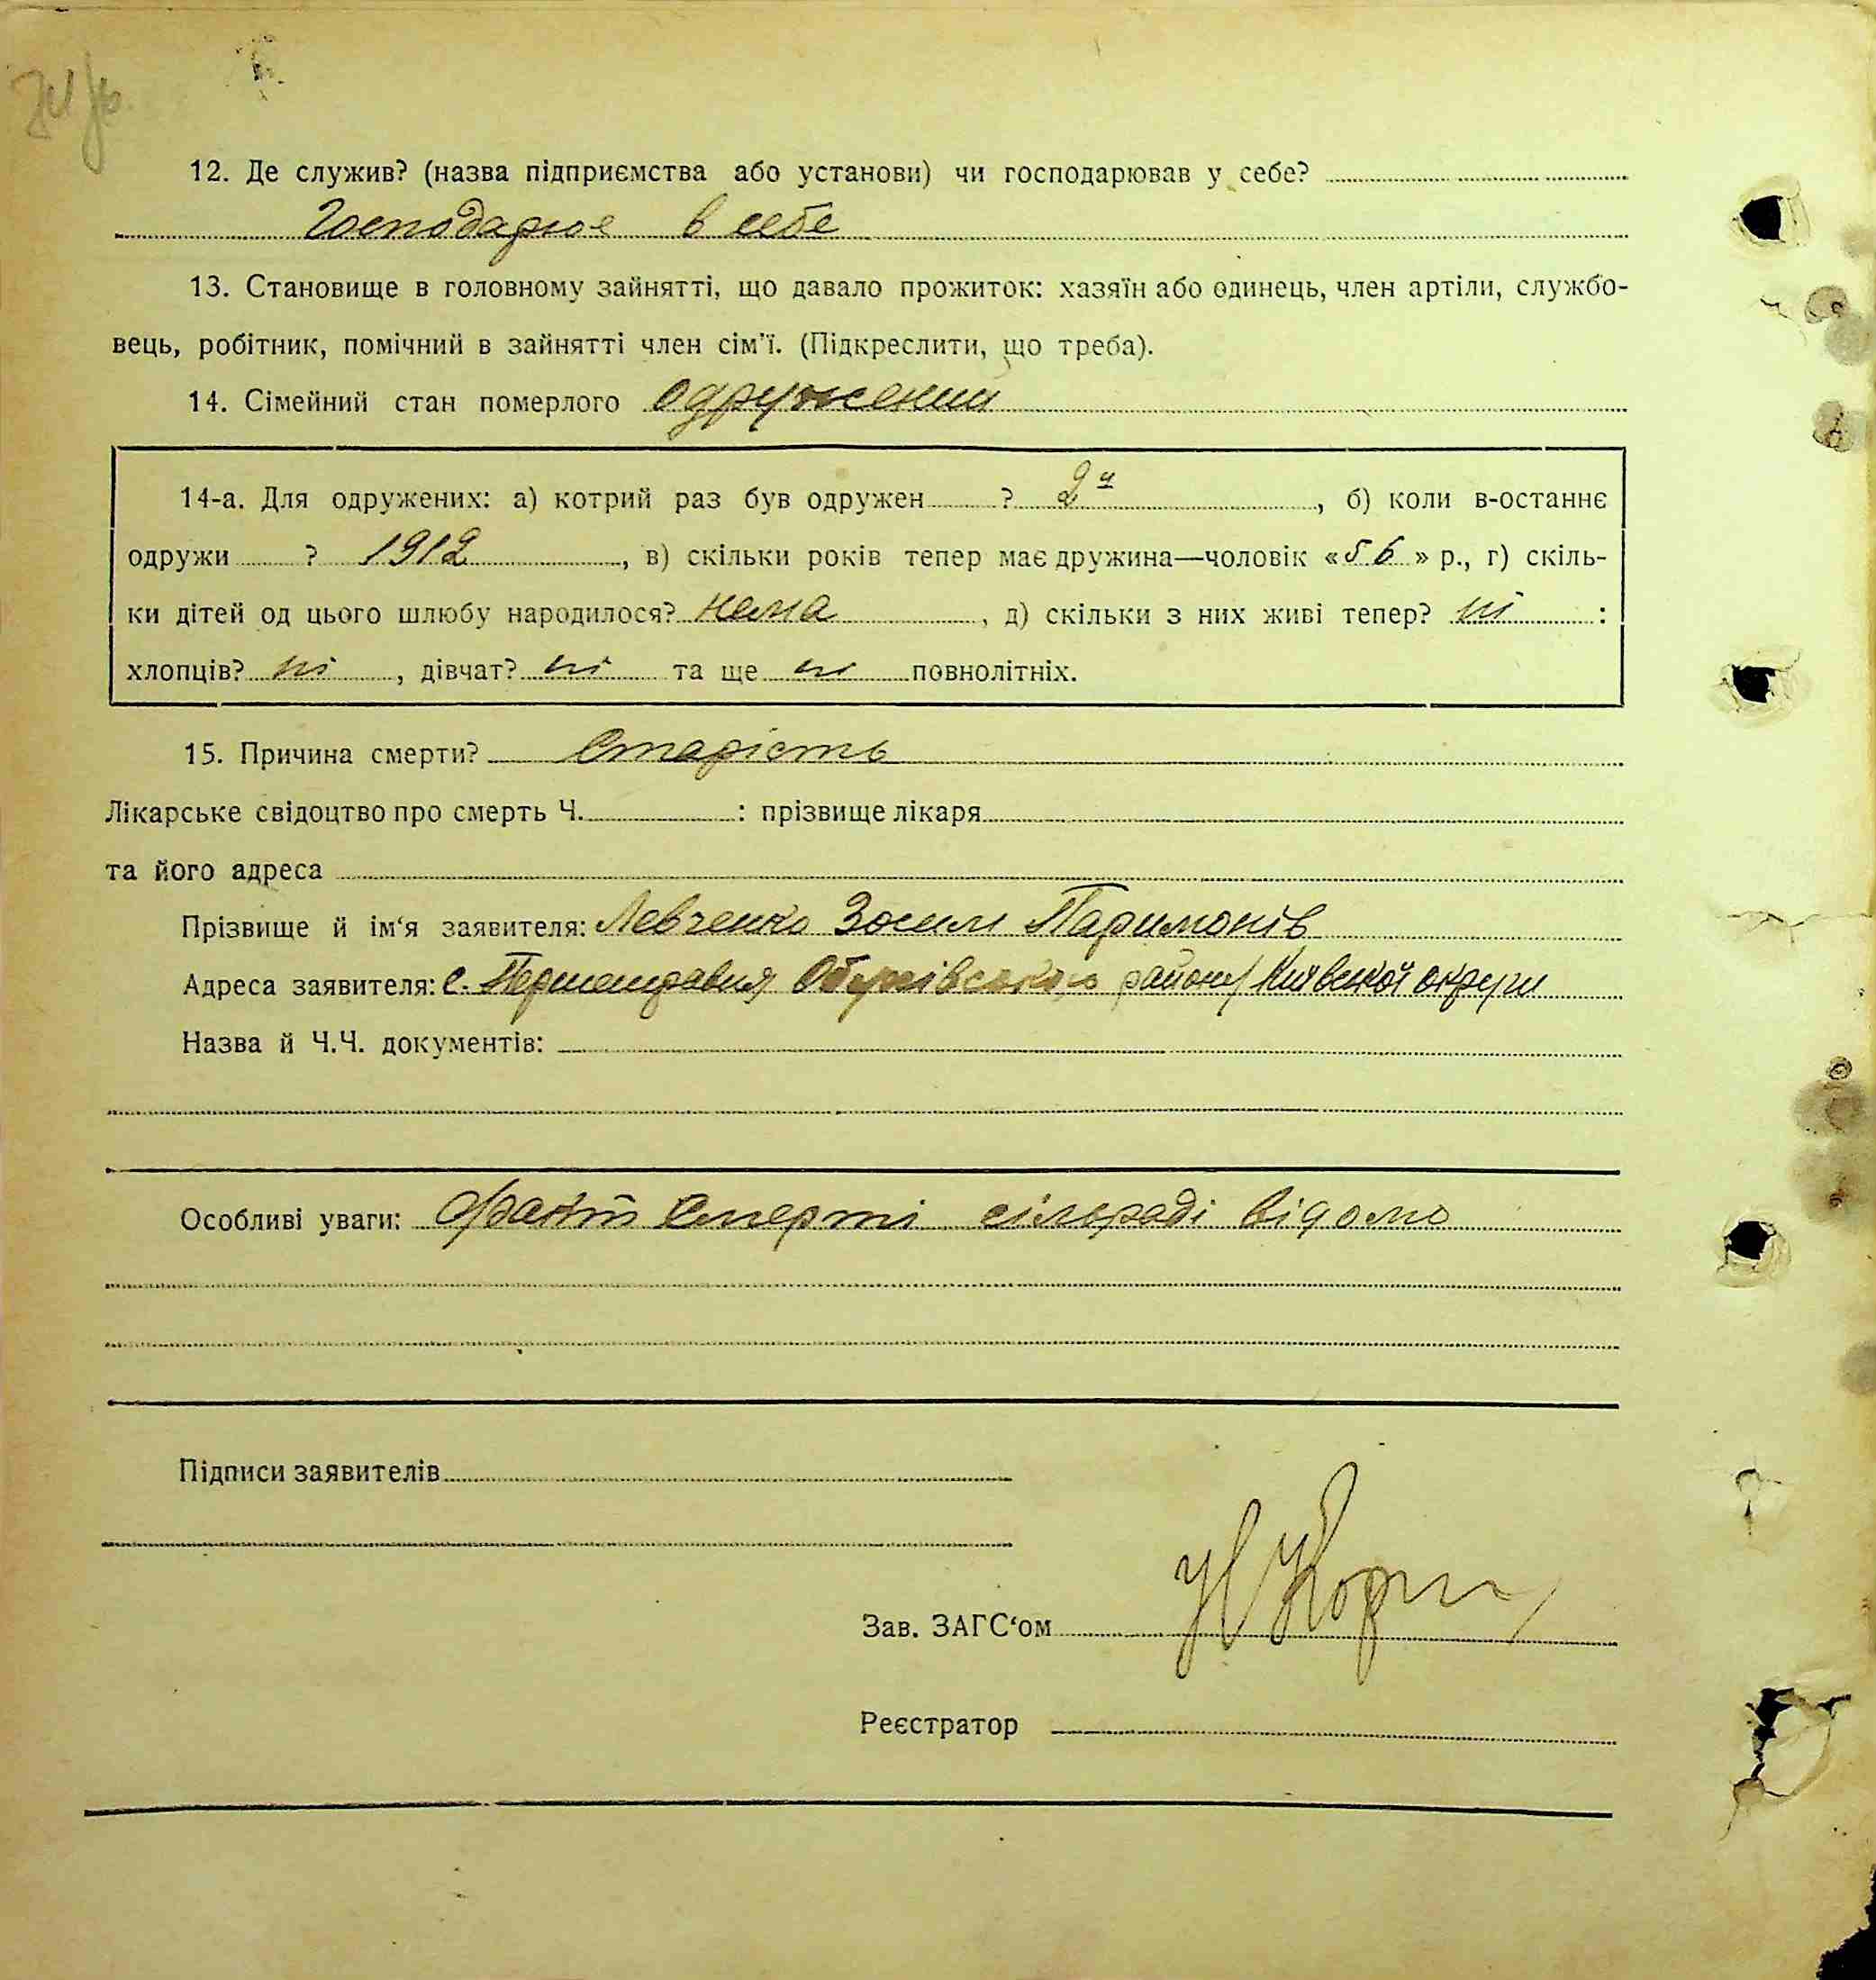 12. Де служив? (назва підприємства або установи) чи господарював у себе?
Господарює в себе
13. Становище в головному зайнятті, що давало прожиток: хазяїн або одинець, член артіли, службо-
вець, робітник, помічний в зайнятті член сім'ї. (Підкреслити, що треба).
14. Сімейний стан померлого одружений
14-а. Для одружених: а) котрий раз був одружен ? 2й, б) коли в-останнє
одружи ? 1912, в) скільки років тепер має дружина—чоловік «56» р., г) скіль-
ки дітей од цього шлюбу народилося? нема, д) скільки з них живі тепер? ні :
хлопців? ні, дівчат? ні та ще ні повнолітніх.
15. Причина смерти? Старість
Лікарське свідоцтво про смерть Ч. : прізвище лікаря
та його адреса
Прізвище й ім'я заявителя: Левченко Зосим Паримонів
Адреса заявителя: с. Обухівського району Київської округи
Назва й Ч.Ч. документів:
Особливі уваги: Факт смерті сільраді відомо
Підписи заявителів
Зав. ЗАГС'ом
Реєстратор